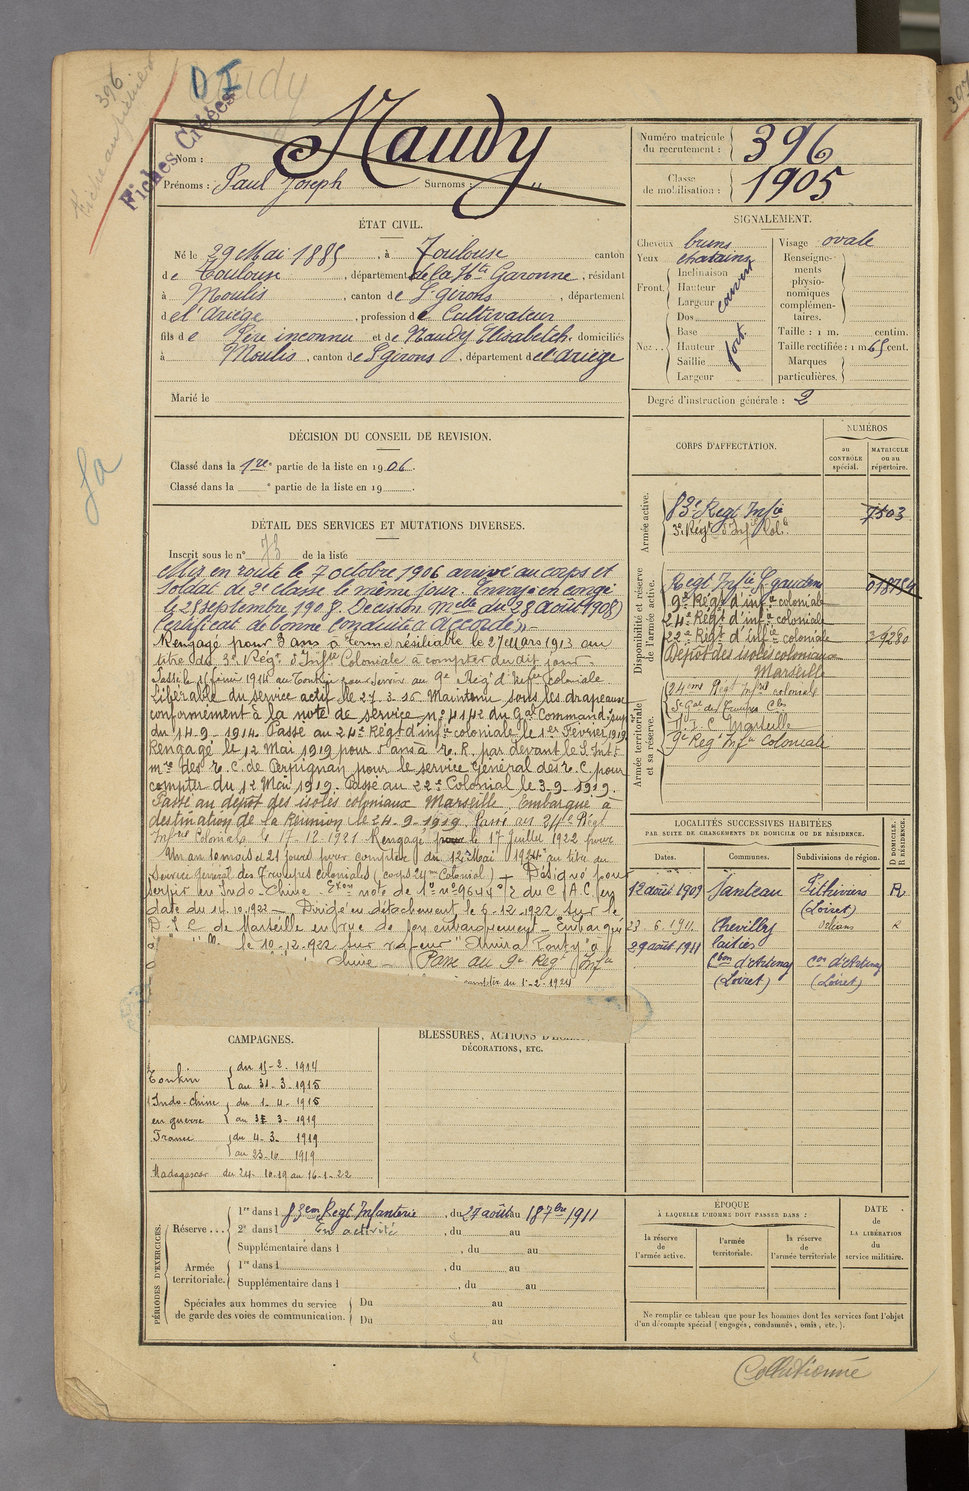 396
Fiche au fichier
D I
Naudy
Fiches Créées
Nom : Naudy
Prénoms : Paul Joseph Surnoms : "
Numéro matricule du recrutement : 396
Classe de mobilisation : 1905
ÉTAT CIVIL.
Né le 29 Mai 1885, à Toulouse canton
de Toulouse, département de la Hte Garonne, résidant
à Moulis, canton de St girons, département
de l'Ariège, profession de Cultivateur
fils de Père inconnu et de Naudy Elisabeth, domiciliés
à Moulis, canton de St girons, département de l'ariège
Marié le
SIGNALEMENT.
Cheveux bruns
Yeux chatains
Front. Inclinaison
Hauteur
Largeur
couvert
Nez... Dos
Base
Hauteur
Saillie
Largeur
fort.
Visage ovale
Renseigne-
ments
physio-
nomiques
complémen-
taires.
Taille : 1 m. centim.
Taille rectifiée : 1 m 65 cent.
Marques
particulières.
Degré d'instruction générale : 2
DÉCISION DU CONSEIL DE REVISION.
Classé dans la 1re partie de la liste en 1906.
Classé dans la e partie de la liste en 19
DÉTAIL DES SERVICES ET MUTATIONS DIVERSES.
Inscrit sous le n° 73 de la liste
Mis en route le 7 octobre 1906 arrivé au corps et
soldat de 2e classe le même jour. Envoyé en congé
le 25 septembre 1908. Décision Melle du 28 août 1908)
Certificat de bonne Conduite « Accordé ».
Rengagé pour 3 ans à terme résiliable le 27 Mars 1913 au
titre du 3e Régt d'Infie Coloniale à compter du dit jour.
Passé le 15 février 1914 au Tonkin pour servir au 9e Régt d'Infie Coloniale
Libérable du service actif le 27.3.16. Maintenu sous les drapeaux
conformément à la note de service n° 4142 du Gal Commandt Sup
du 14-9-1914 Passé au 24e Régt d'infie coloniale le 1er Février 1919
Rengagé le 12 Mai 1919 pour 3 ans à T.R. par devant le S. Intt
mre des T.C. de Perpignan pour le service Général des T.C. pour
compter du 12 Mai 1919. Passé au 22e Colonial le 3-9-1919.
Passé au dépôt des isolés coloniaux Marseille. Embarqué à
destination de la Réunion le 24-9-1919 Passé au 24e Régt
Infrie Coloniale le 17-12-1921 Rengagé le 17 Juillet 1922 pour
Un an 10 mois et 21 jours pour compter du 12 Mai au titre du
Service Général des Troupes Coloniales (corps 24me Colonial) + Désigné pour
servir en Indo-Chine. Exon note de No n° 9644 °/2 du C.A.C. en
date du 14.10.1922 — Dirigé en détachement le 6-12-1922 sur le
D.I.C. de Marseille en vue de son embarquement — Embarqué
le 10-12-922 sur vapeur "Amiral Ponty" à
chine — Passé au 9e Régt Infie
compter du 1-2-1924
CORPS D'AFFECTATION.
NUMÉROS
au CONTRÔLE spécial.
MATRICULE ou au répertoire.
Armée active.
83e Régt Infie 7503
3e Régt d'Infie Colle
Disponibilité et réserve de l'armée active.
Regt Infie St gaudens 018194
9e Régt d'infie coloniale
24e Régt d'infie coloniale
22e Régt d'infie coloniale 29280
Dépôt des isolés coloniaux
Marseille
Armée territoriale et sa réserve.
24eme Régt Infrie coloniale
Sce Gal des Troupes Cles
D.I.C Marseille
9e Régt Infie Coloniale
LOCALITÉS SUCCESSIVES HABITÉES
PAR SUITE DE CHANGEMENTS DE DOMICILE OU DE RÉSIDENCE.
Dates. Communes. Subdivisions de région. D DOMICILE. R RÉSIDENCE.
12 août 1909 Santeau Pithiviers R
(Loiret)
23.6.1911. Chevilly Orléans R
29 août 1911
Cton d'Artenay Con d'Artenay
(Loiret) (Loiret)
CAMPAGNES.
Tonkin du 15-2-1914
au 31-3-1915
Indo-chine du 1-4-1915
en guerre au 3-3-1919
France du 4-3-1919
au 23-10-1919
Madagascar du 24-10-19 au 16-1-22
BLESSURES, ACTIONS D'ÉCLAT
DÉCORATIONS, ETC.
PÉRIODES D'EXERCICES.
Réserve... 1re dans l 83eme Régt Infanterie, du 27 août au 18 7bre 1911
2e dans l En activité, du au
Supplémentaire dans l, du au
Armée territoriale. 1re dans l, du au
Supplémentaire dans l, du au
Spéciales aux hommes du service Du au
de garde des voies de communication. Du au
ÉPOQUE
À LAQUELLE L'HOMME DOIT PASSER DANS :
la réserve de l'armée active.
l'armée territoriale.
la réserve de l'armée territoriale
DATE de LA LIBÉRATION du service militaire.
Ne remplir ce tableau que pour les hommes dont les services font l'objet
d'un décompte spécial (engagés, condamnés, omis, etc.).
Collationné